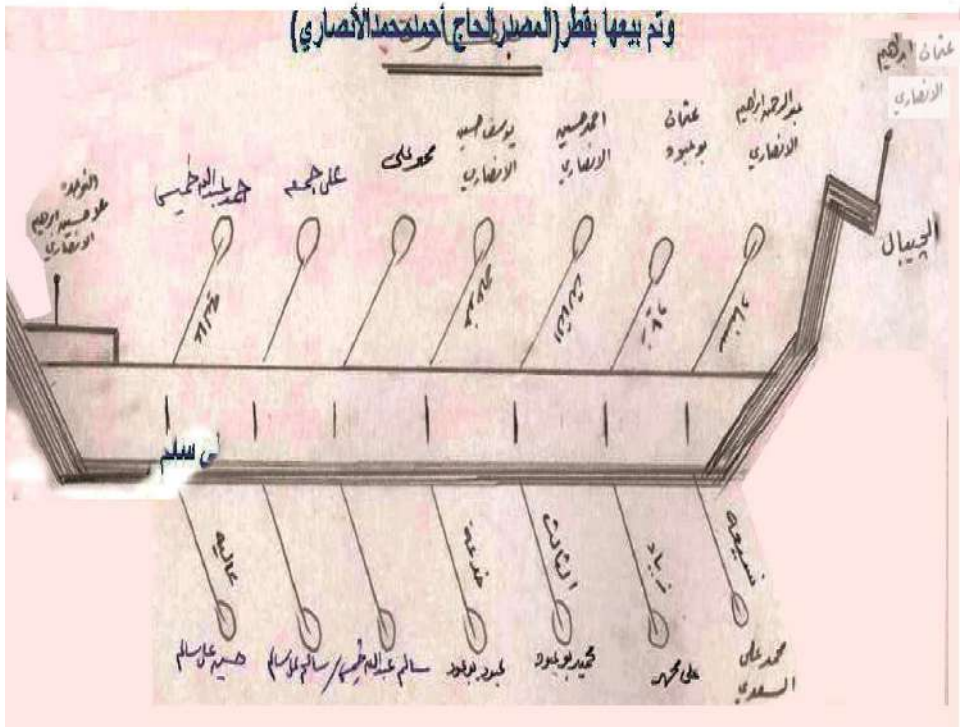 وتم بيعها بقطر (المصدر الحاج أحمد محمد الأنصاري)
عثمان ابراهيم
الانصاري
عبدالرحمن ابراهيم
الانصاري
عثمان
بوعبود
احمد حسين
الانصاري
يوسف حسين
الانصاري
محمد علي
علي جمعه
حمد عبدالله خميس
النوخذة
ملا حسين ابراهيم
الانصاري
الجيبال
الثالث
عاليه
نسيعه
زياد
الثالث
خدعة
عاليه
محمد علي
السعدي
حميد بوعبود
عبود بوعبود
سالم عبدالله خميس / سالم علي سالم
حسين علي سالم